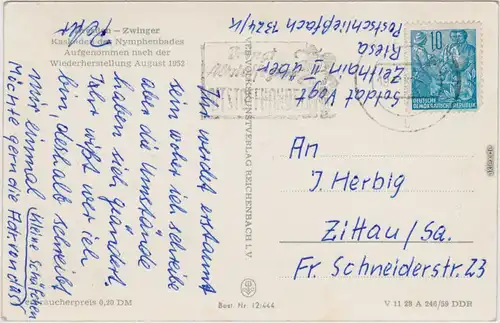 Dresden – Zwinger
Kaskaden des Nymphenbades
Aufgenommen nach der
Wiederherstellung August 1953
Ihr werdet erstaunt
sein woher ich schreibe
aber die Umstände
haben sich geändert.
Ihr wißt wer ich
bin, deshalb schreibt
mir einmal
Möchte gern die Adr. von das
kleine Schätzchen
Verbraucherpreis 0,20 DM
Best. Nr. 12/444
VEB VOLKSKUNSTVERLAG REICHENBACH I. V.
Soldat Vogt
Zeithain II über
Riesa
Postschließfach 7524/K
10
DEUTSCHE
DEMOKRATISCHE REPUBLIK
An
J. Herbig
Zittau/Sa.
Fr. Schneiderstr. 23
V 11 28 A 246/59 DDR